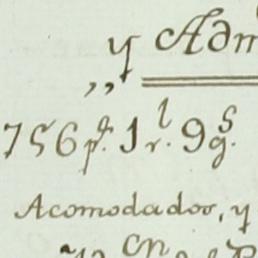 y Adm
„
756 p.s 1 r.l 9 g.s
Acomodados, y